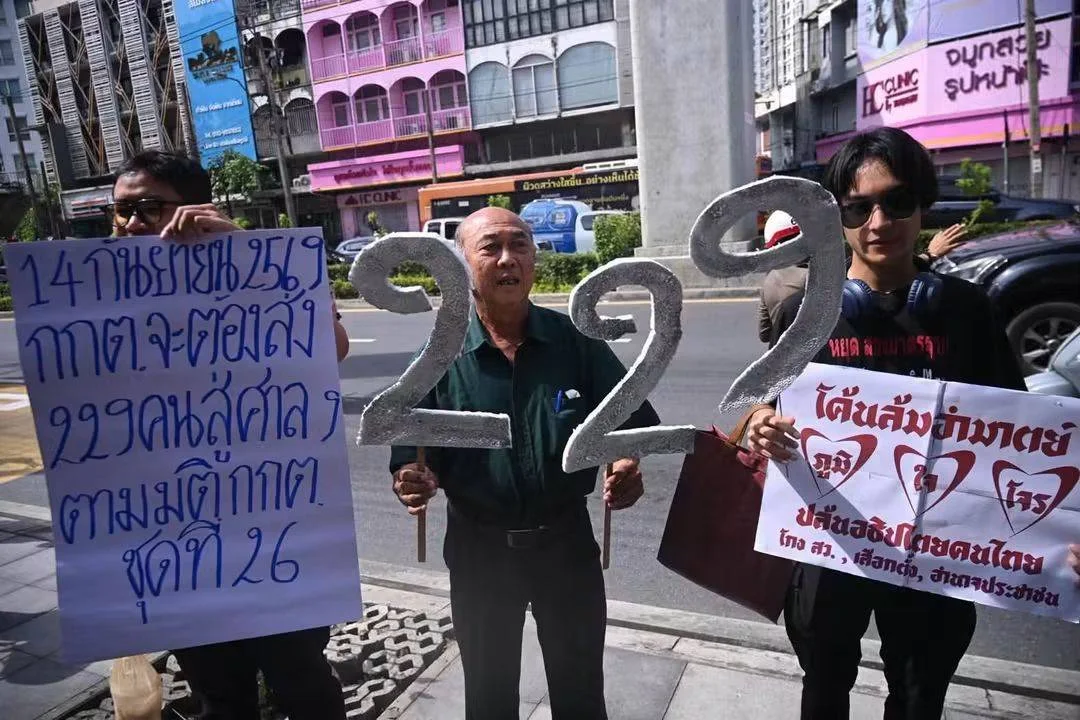 14 กันยายน 2569
กกต. จะต้องส่ง
229 คนสู่ศาล ๆ
ตามมติ กกต.
ชุดที่ 26
229
โค้นล้มอำมาตย์
ภูมิ
ใจ
โจร
ปล้นอธิปไตยคนไทย
โกง สว., เลือกตั้ง, อำนาจประชาชน
หยุด
จมูกสวย
รูปหน้าเป๊ะ
CLINIC
CLINIC
ผิวสว่างใส! อย่างเห็นได้